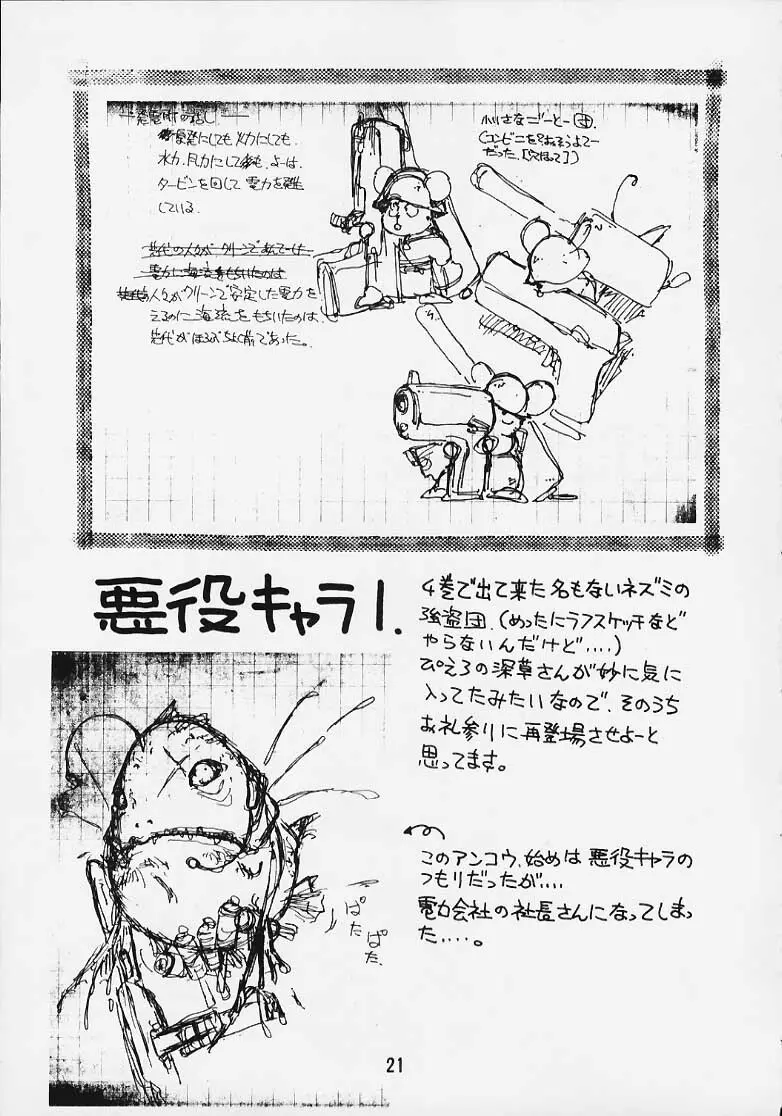 発電所の話し
原発にしても火力にしても、
水力、風力にしても、よーは、
タービンを回して電力を発
している。
人々がクリーンで安定した電力を
えるのに海流をもちいたのは、
先代がほろぶちょい前であった。
小さなごーとー団.
(コンビニをおそうよてー
だった。[穴ほって])
悪役キャラ1.
4巻で出て来た名もないネズミの
強盗団.(めったにラフスケッチなど
やらないんだけど....)
ぴえろの深草さんが妙に気に
入ってたみたいなので、そのうち
お礼参りに再登場させよーと
思ってます。
このアンコウ、始めは悪役キャラの
つもりだったが....
電力会社の社長さんになってしまっ
た....。
ぱた
ぱた.
21